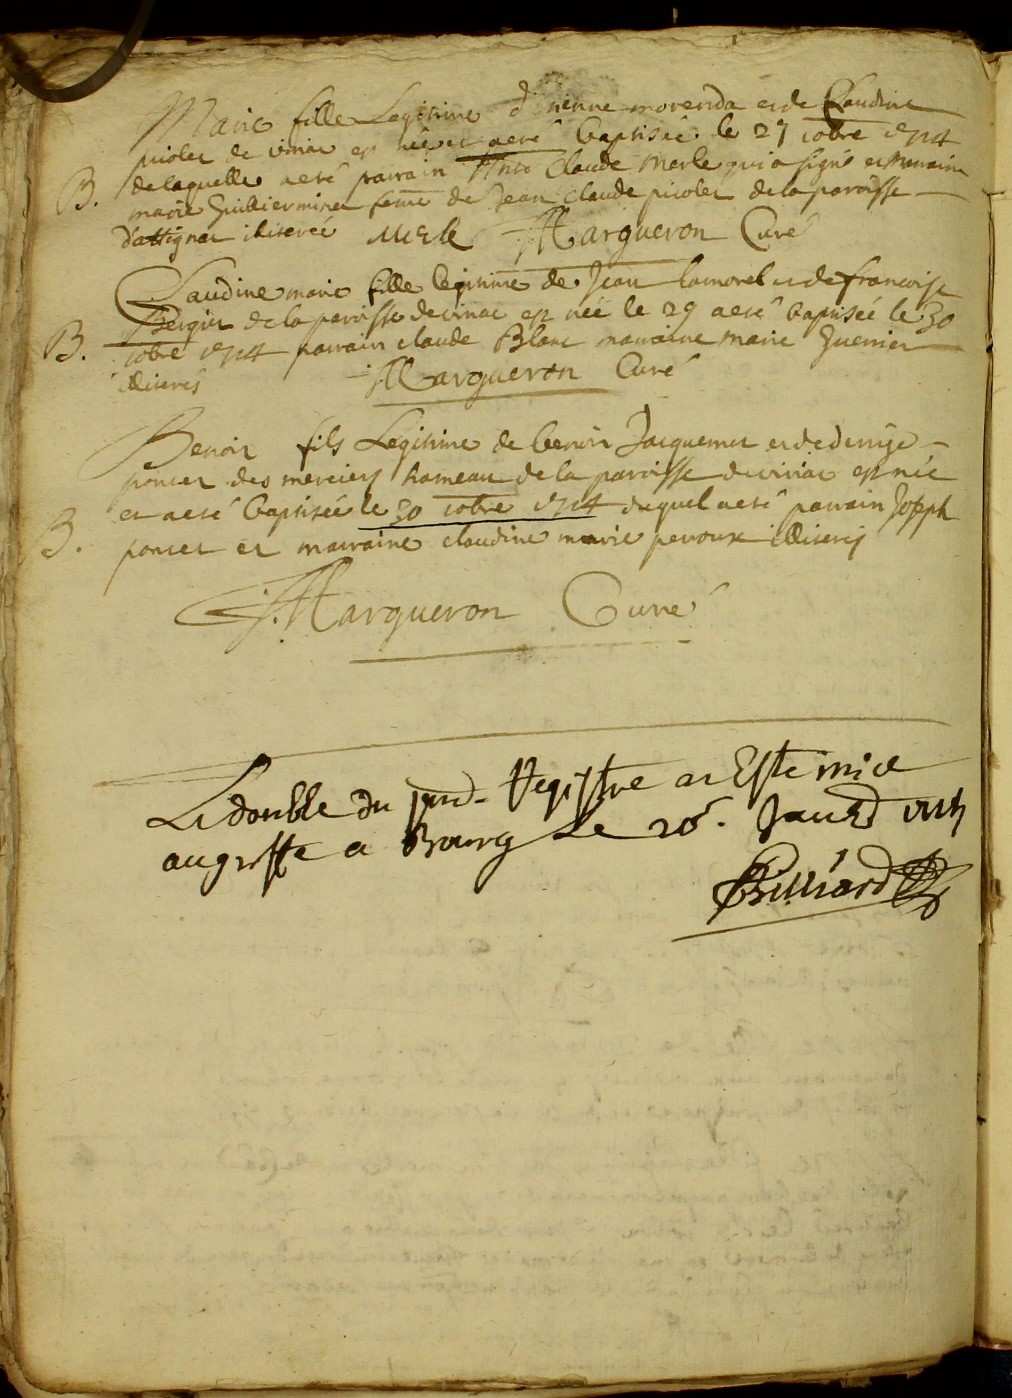 Marie fille Legitime d'etienne morenda et de Claudine
picolet de viriat est née et aeté baptisée le 27 xobre 1714
B. de laquelle aeté parrain Claude Merle qui a signé et maraine
marie guillierminet feme de Jean claude picolet de la paroisse
d'attignat illiterée Merle Margueron Curé
Claudine marie fille legitime de Jean lamorel et de francoise
Bergier de la paroisse de viriac est née le 29 aeté baptisée le 30
B. xobre 1714 parrain claude Blanc maraine marie guerrier
illiterés Margueron Curé
Benoit fils Legitime de benoit Jacquemet et de denise
poncet des merciers hameau de la parroisse de viriac est née
et aeté baptisée le 30 xobre 1714 duquel aeté parrain Joseph
B. poncet et marraine claudine marie perroux illiteris
Margueron Curé
Le double du pnd. Registre a Esté mice
au greffe a Bourg Le 26. Janvr
Billiard